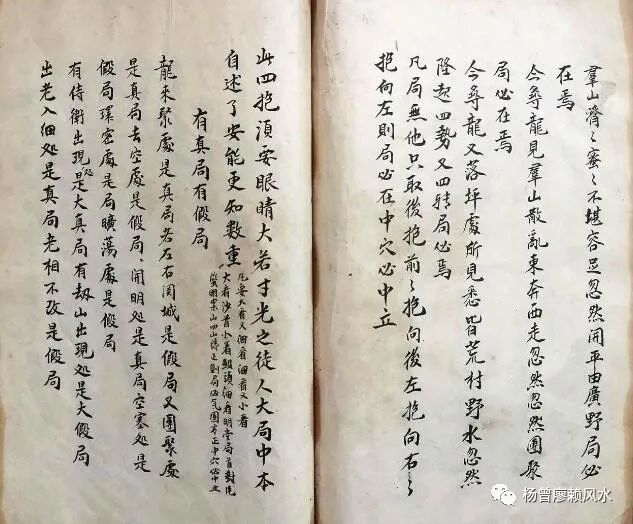 羣山濟〻寨〻不堪容足忽然開平由廣野局必
在焉
今尋龍見羣山散亂東奔西走忽然忽然團聚
局必在焉
今尋龍又落坪處所見悉皆荒村野水忽然
隆起四勢又四转局必焉
凡局無他只取後抱前〻抱向後左抱向右〻
抱向左則局必在中穴必中立
此四抱須要眼晴大若寸光之徒人大局中本
自述了安能更知數重
凡要大看又細看細看又小看
大看沙首小看顛頭細看明堂局首對
案山四山局必氣團中穴必中立
有真局有假局
龍来聚處是真局若左右囘城是假局又團聚處
是真局去空處是假局開明処是真局空塞処是
假局環密處是局曠蕩處是假局
有侍衛出現処是大真局有劫山出現処是大假局
出老入細処是真局老相不改是假局
杨曾廖赖风水